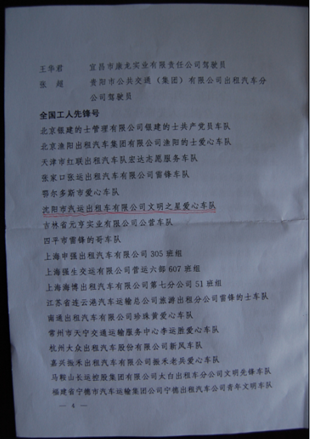 王华君 宜昌市康龙实业有限责任公司驾驶员
张超 贵阳市公共交通（集团）有限公司出租汽车分
公司驾驶员
全国工人先锋号
北京银建的士管理有限公司银建的士共产党员车队
北京渔阳出租汽车集团有限公司渔阳的士爱心车队
天津市红联出租汽车队宏达志愿服务车队
张家口张运出租汽车有限公司雷锋车队
鄂尔多斯市爱心车队
沈阳市汽运出租车有限公司文明之星爱心车队
吉林省元亨实业有限公司公营车队
四平市雷锋的哥车队
上海申强出租汽车有限公司305班组
上海强生交运有限公司营运六部607班组
上海海博出租汽车有限公司第七分公司51班组
江苏省连云港汽车运输总公司旅游出租分公司雷锋的士车队
南通出租汽车有限公司珍珠黄爱心车队
常州市天宁交通运输服务中心李运胜爱心车队
杭州大众出租汽车股份有限公司新风车队
嘉兴振禾出租汽车有限公司振禾老兵爱心车队
马鞍山长运控股集团有限公司大白出租车分公司文明先锋车队
福建省宁德市汽车运输集团公司宁德出租汽车公司青年文明车队